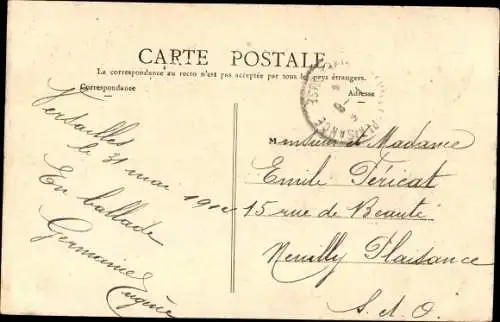 CARTE POSTALE
La correspondance au recto n'est pas acceptée par tous les pays étrangers.
Correspondance
Adresse
Versailles
le 31 mai
En ballade
Germaine
Eugène
PLAISANCE
Monsieur et Madame
Emile Féricat
15 rue de Beauté
Neuilly Plaisance
S. & O.